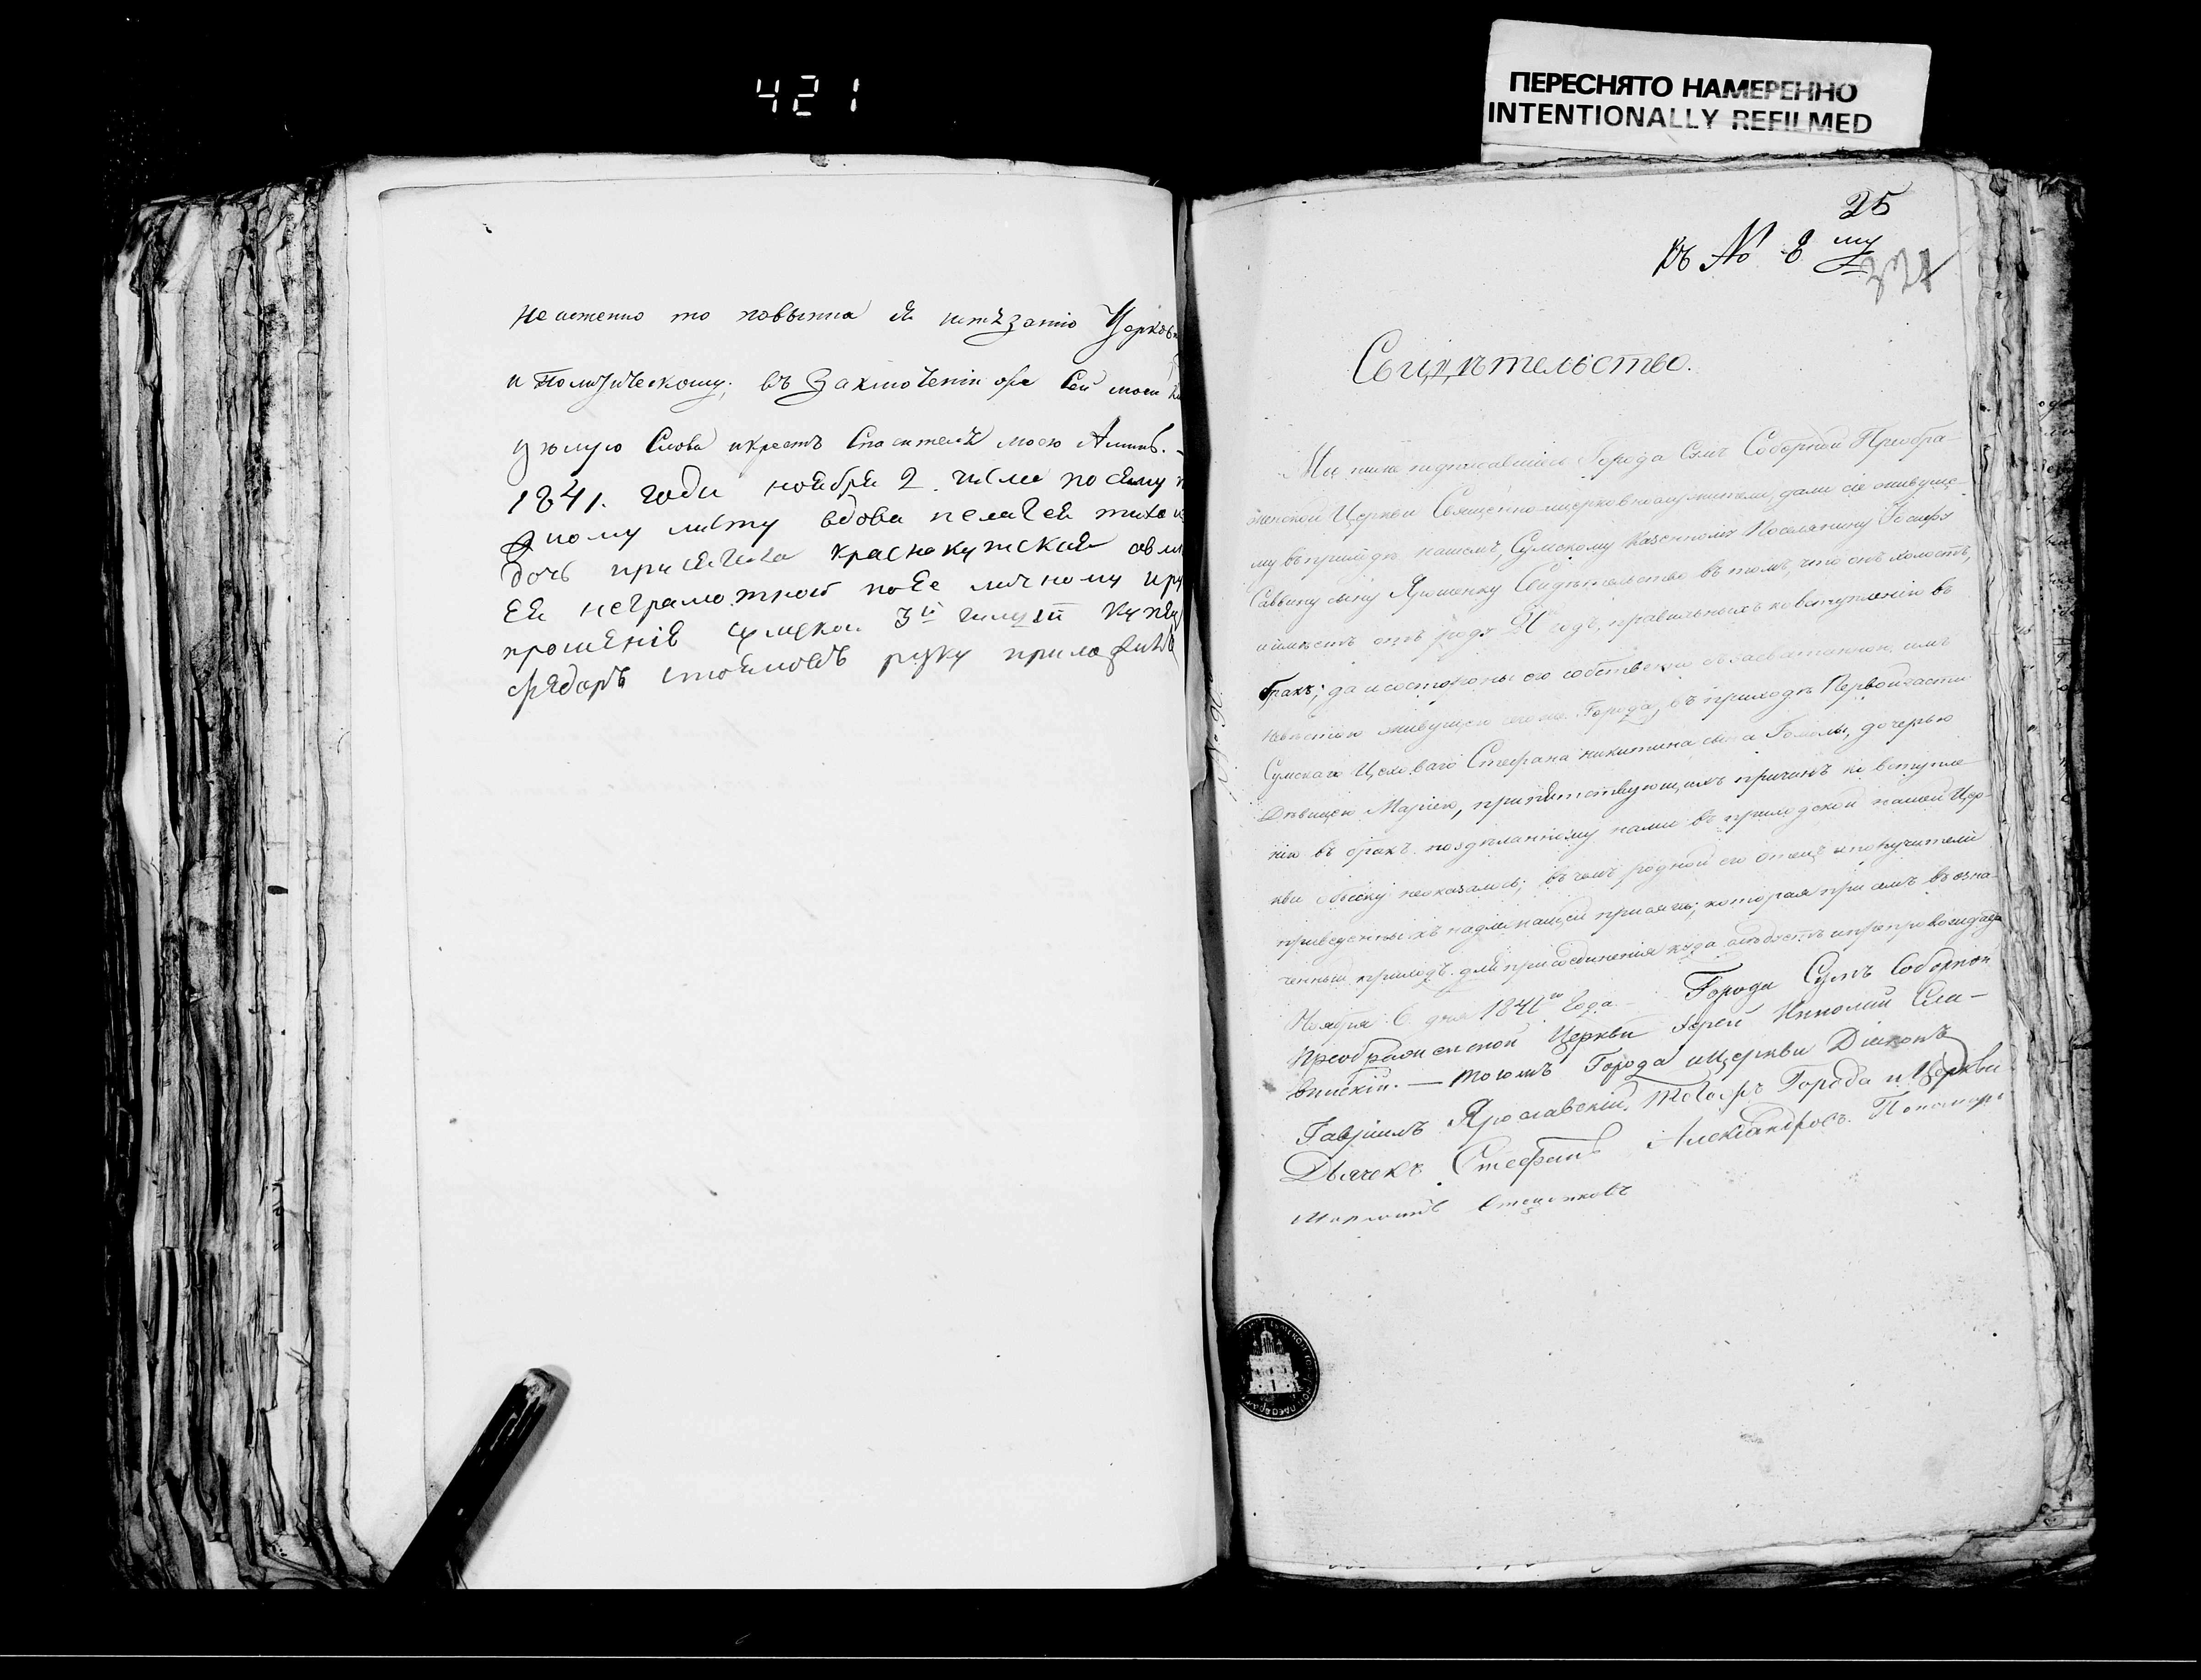 421
ПЕРЕСНЯТО НАМЕРЕННО
INTENTIONALLY REFILMED
неистенно то повинна я истязанію Церковн
и Политическому; въ Заключеніи же сей моей
цѣлую Слова и крестъ Спасителя моего Аминь.
1841. года ноября 2. числа по сему
листу вдова пелагея
дочь присягила краснокутская
Ея неграмотной по Ее личному
прошенію сумской 3й гильдіи
Фядоръ руку приложилъ
25
Къ № 8 му
Свидѣтельство.
Мы ниже подписавшіеся Города Сумъ Соборной Преобра-
женской Церкви Священноцерковнослужители, дали сіе живуще-
му въ приходѣ нашемъ, Сумскому Казенному Поселянину Іосифу
Саввину сыну Ярошенку Свидѣтельство въ томъ, что онъ холостъ,
и имѣетъ отъ роду годъ, правильныхъ ко вступленію въ
бракъ; да и со стороны его собственно съ засватанною имъ
невѣстою живущею Города, въ приходѣ Первой части
Сумскаго Цеховаго Стефана Никитина сына Гомолы, дочерью
Дѣвицею Маріею, препятствующихъ причинъ ко вступле-
нію въ бракъ по здѣланному нами въ приходской нашей Цер-
кви обыску не оказалось; въ чемъ родной его отецъ и поручители
приведены къ надлежащей присягѣ; которая при семъ въ озна-
ченный приходъ для присоединенія куда слѣдуетъ и препровождается
Ноября 6 дня 1841го Года. — Города Сумъ Соборной
Преображенской Церкви Іерей Николай Сла-
винскій. — Тогожъ Города и Церкви Діаконъ
Гавріилъ Ярославскій. Тогожъ Города и Церкви
Дьячекъ Стефанъ Александровъ. Пономарь